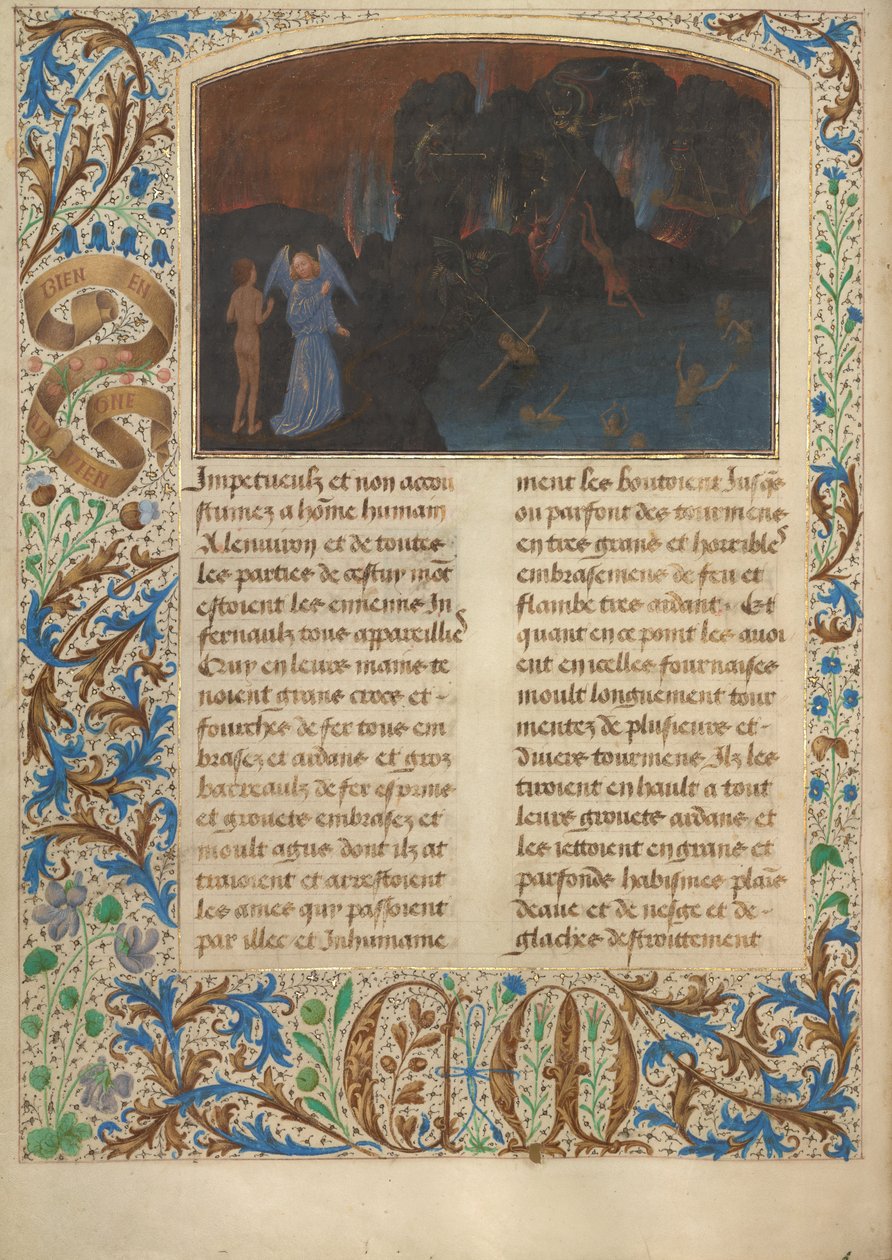 BIEN EN
AD GNE
VIEN
Impetueulz et non accou
stumez a hōme humain
A lenuiron et de toutes
les parties de cestuy mōt
estoient les ennemis In
fernaulz tous appareilliés
Quy en leurs mains te
noient grans crocs et -
fourches de fer tous em
brasez et ardans et groz
barreaulz de fer esprins
et grouets embrasez et
moult agus dont ilz at
traioient et arrestoient
les ames quy passoient
par illec et Inhumaine
ment les boutoient Jusq̄s
ou parfont des tourmens
en tres grans et horribles
embrasemens de feu et
flambe tres ardant . Et
quant en ce point les auoi
ent en icelles fournaises
moult longuement tour
mentez de plusieurs et -
diuers tourmens Ilz les
tiroient en hault a tout
leurs grouets ardans et
les iettoient en grans et
parfonds habismes plais
deaue et de neige et de -
glaches destroittement
CM